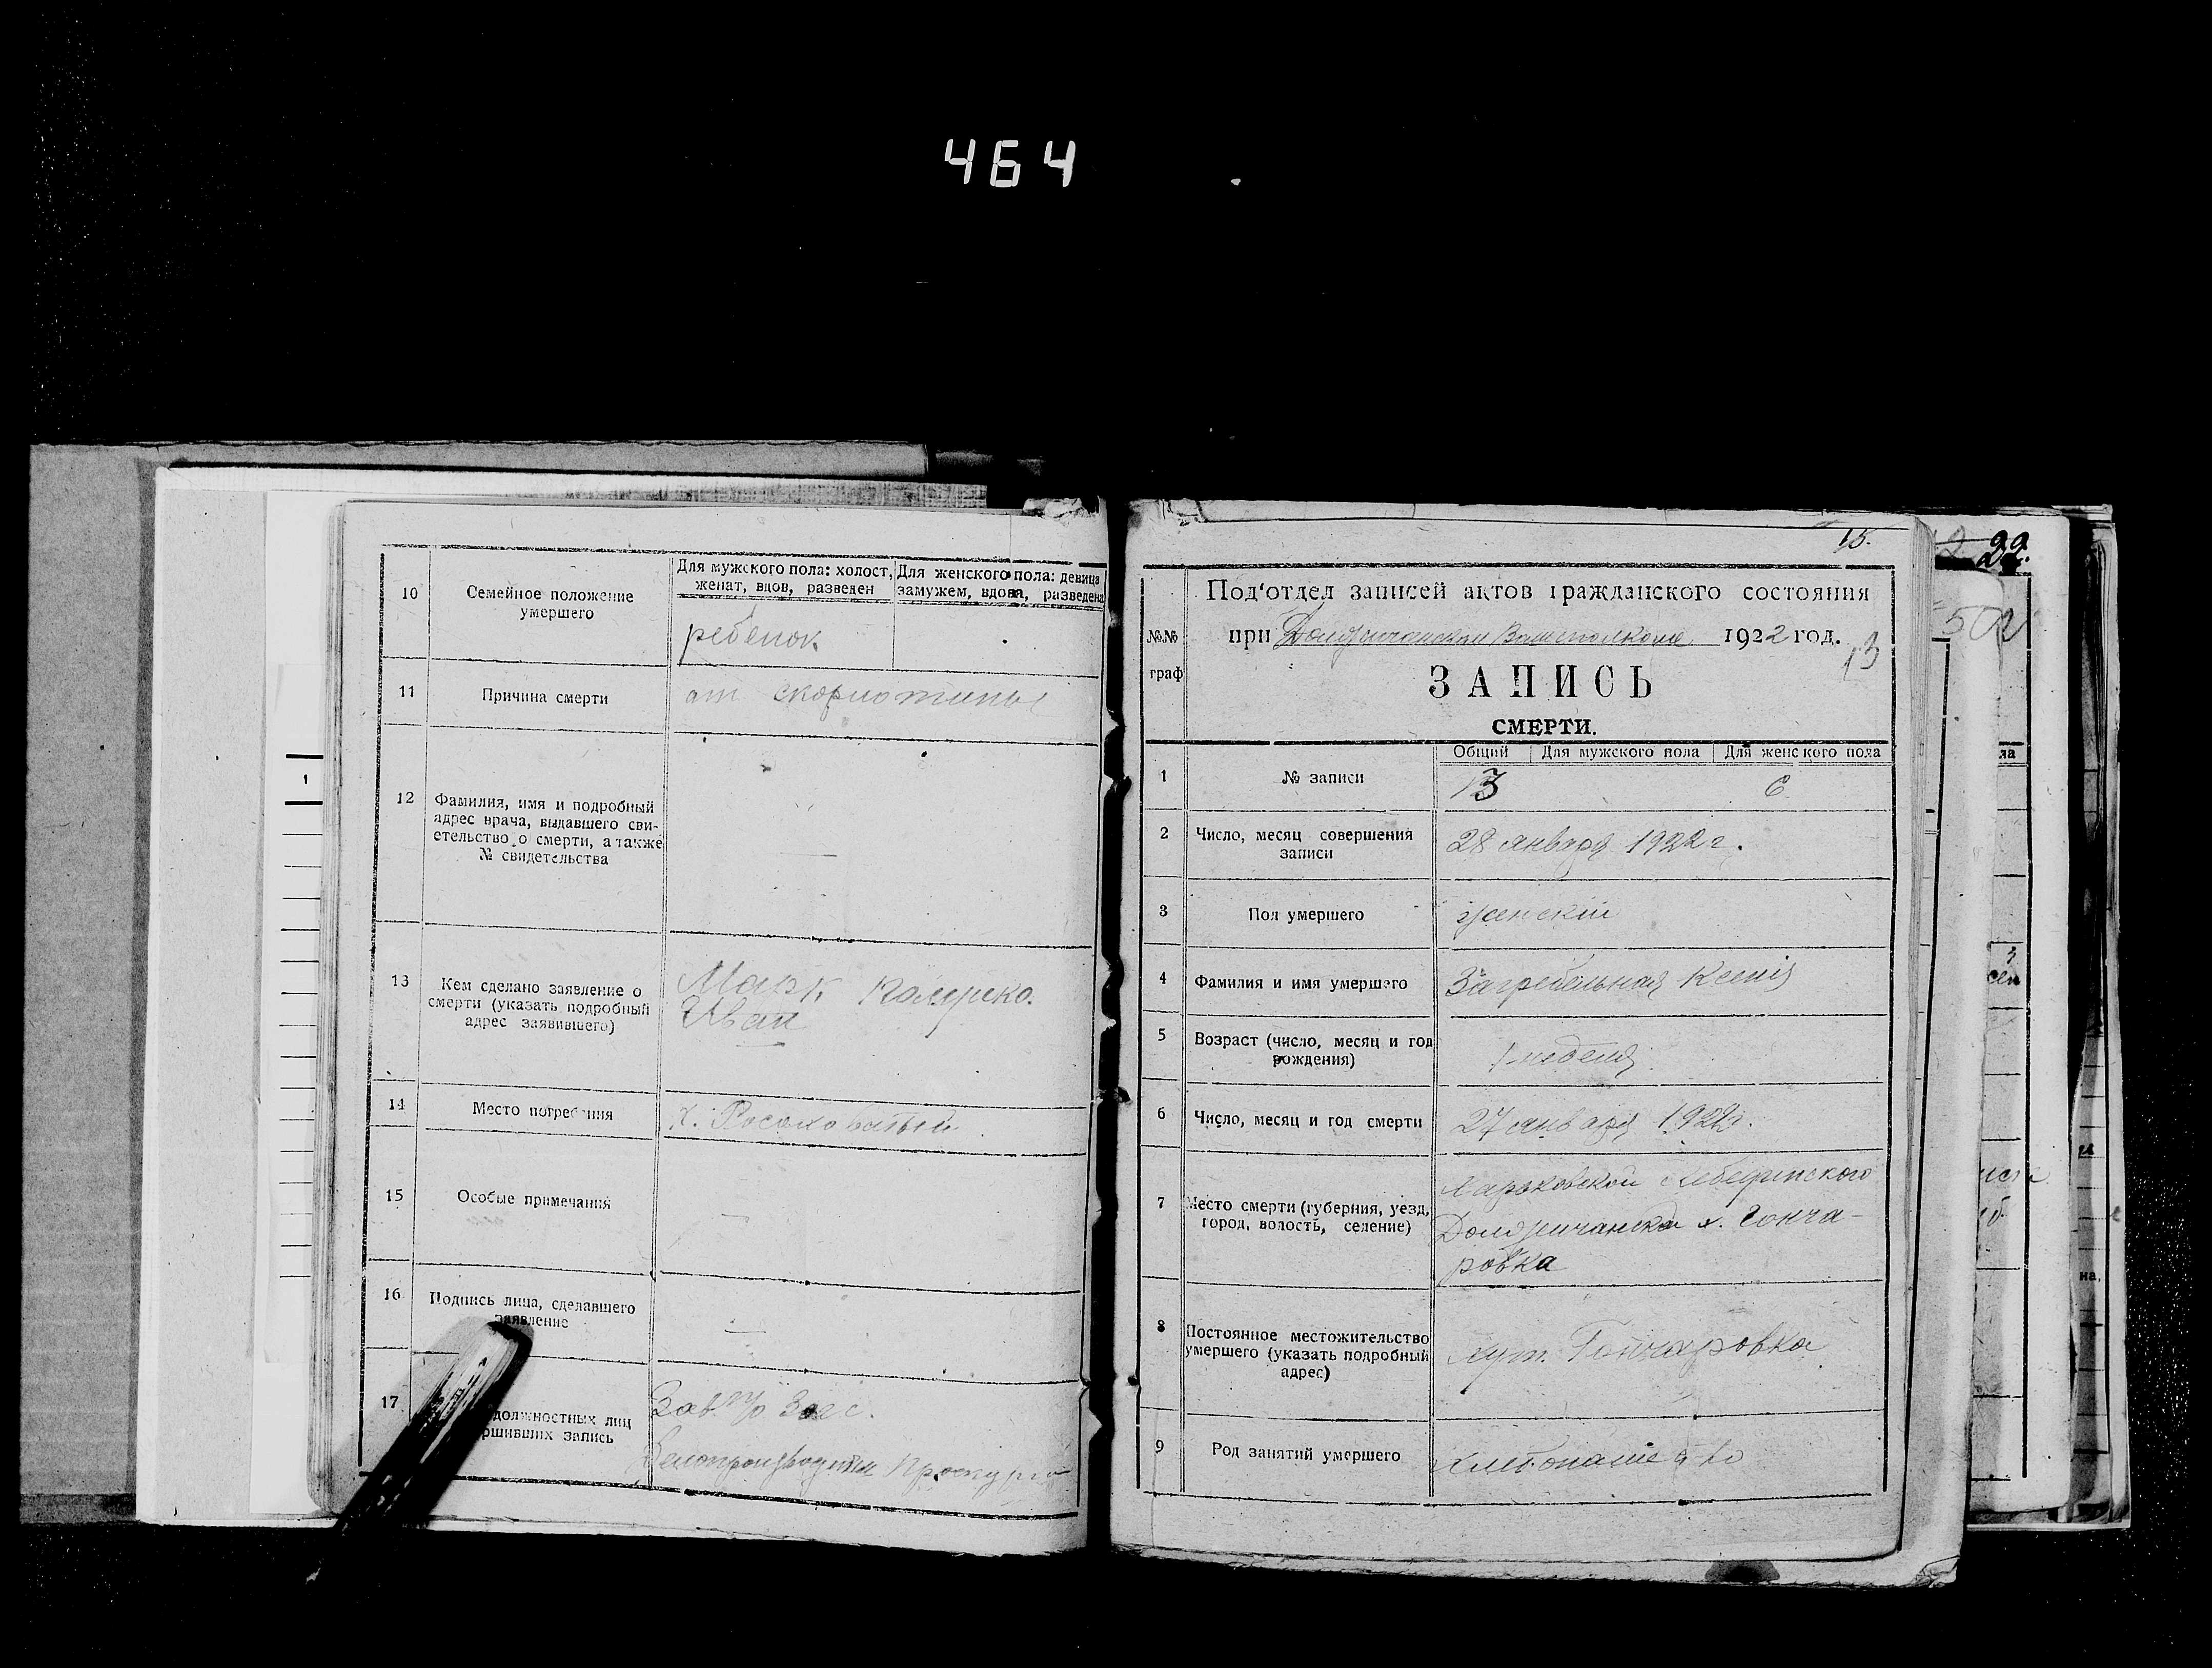 464
10
Семейное положение
умершего
Для мужского пола: холост,
женат, вдов, разведен
Для женского пола: девица
замужем, вдова, разведена
ребенок
11
Причина смерти
от
12
Фамилия, имя и подробный
адрес врача, выдавшего сви-
етельство о смерти, а также
№ свидетельства
—
13
Кем сделано заявление о
смерти (указать подробный
адрес заявившего)
Иван
14
Место погребения
х. Росоховатый
15
Особые примечания
—
16
Подпись лица, сделавшего
заявление
—
17
должностных лиц
ршивших запись
Зав. п/о Загс.
Делопроизводитель
1
15.
№№
граф
Под'отдел записей актов гражданского состояния
при 1922 год.
13
ЗАПИСЬ
СМЕРТИ.
Общий
Для мужского пола
Для женского пола
1
№ записи
13
6
2
Число, месяц совершения
записи
28 января 1922 г.
3
Пол умершего
женский
4
Фамилия и имя умершего
Загребельная
5
Возраст (число, месяц и год
рождения)
1 неделя
6
Число, месяц и год смерти
27 января 1922 г.
7
Место смерти (губерния, уезд,
город, волость, селение)
Харьковской Лебединского
х. Гонча-
ровка
8
Постоянное местожительство
умершего (указать подробный
адрес)
хут. Гончаровка
9
Род занятий умершего
хлебопашество